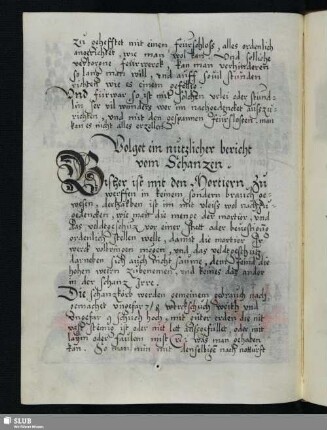 zu gehefftet mit einem feürschloß, alles ordenlich
angerichtet, wie man wol kan. Und solliche
verborgne feürwerck, kan man verhinderen
so lang man will, und auff sovil stunden
richten wie es einem gefelt.
Und fürwar so ist mit solchen
vil wunders wer im nachgedencket
richten, und mit den gespannen feürschlossen, man
kan es nicht alles erzellen.
Volget ein nützlicher bericht
vom Schantzen.
Bißher ist mit den Mortiern, zu
werffen in keinem sondern brauch ge-
wesen, derhalben ist im mit vleiß wol nachzu
gedencken, wie man die menge der mortier, und
das veldtgeschütz vor einer Statt oder bevestigung
ordenlich stellen welle, damit die mortier
werck volbringen mögen, und das veldtgeschütz
darneben sich auch nicht saume, dem feind die
hohen wehrn zubenemen, und keines das ander
in der schantz Irre.
Die schantzkörb werden gemeinem gebrauch nach
gemachet ungefar 7/8 werckschuch weith und
Ungefer 9 schuch hoch, mit guter erden die nit
vast steinig ist oder mit let ausgefüllet, oder mit
laym oder faulem mist was man gehaben
kan. So man nun mit denselbigen nach notturft
SLUB